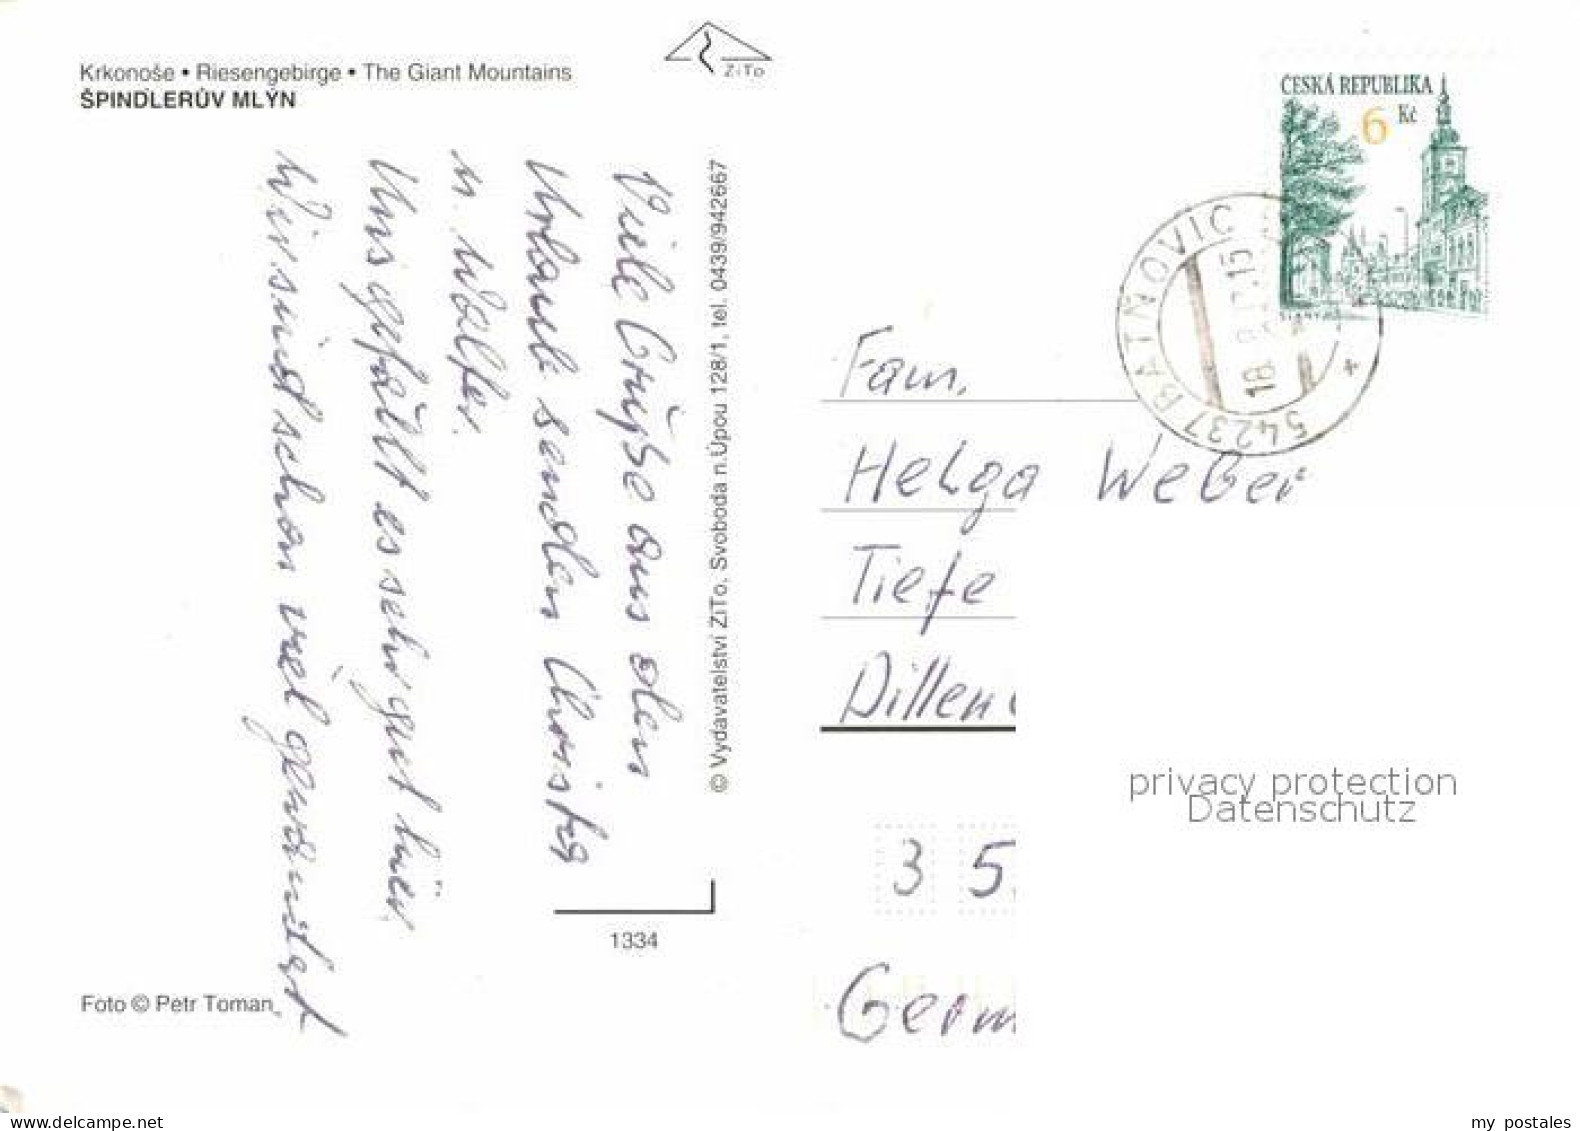 Krkonoše • Riesengebirge • The Giant Mountains
ŠPINDLERŮV MLÝN
ZiTo
Viele Grüße aus dem
Urlaub senden Christa
u. Walter.
Uns gefällt es sehr gut hier.
Wir sind schon viel gewandert
© Vydavatelství ZiTo, Svoboda n.Úpou 128/1, tel. 0439/942667
1334
Foto © Petr Toman
ČESKÁ REPUBLIKA
6 Kč
SLANÝ
54237 BATŇOVIC
Fam.
Helga Weber
Tiefe
Dillen
3 5
Germ
privacy protection
Datenschutz
www.delcampe.net
my postales